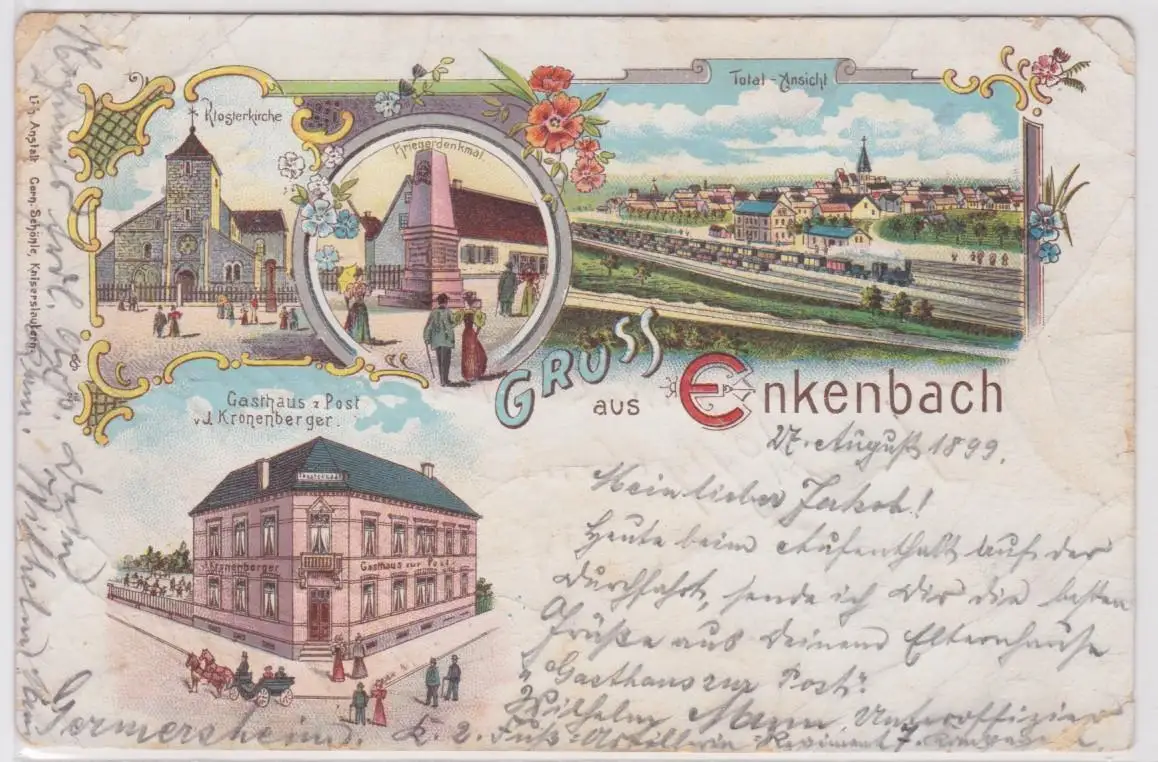 Klosterkirche
Kriegerdenkmal
Total-Ansicht
GRUSS
aus Enkenbach
Gasthaus z Post
v. J. Kronenberger.
Kronenberger
Gasthaus zur Post
Lith. Anstalt Corn. Schönle, Kaiserslautern.
27. August 1899.
Mein lieber Jakob!
Heute beim Aufenthalt auf der
Durchfahrt, sende ich Dir die besten
Grüße aus Deinem Elternhause
"Gasthaus zur Post".
Wilhelm Mann, Unteroffizier
k. 2. Fuß-Artillerie-Regiment 7.
Germersheim.